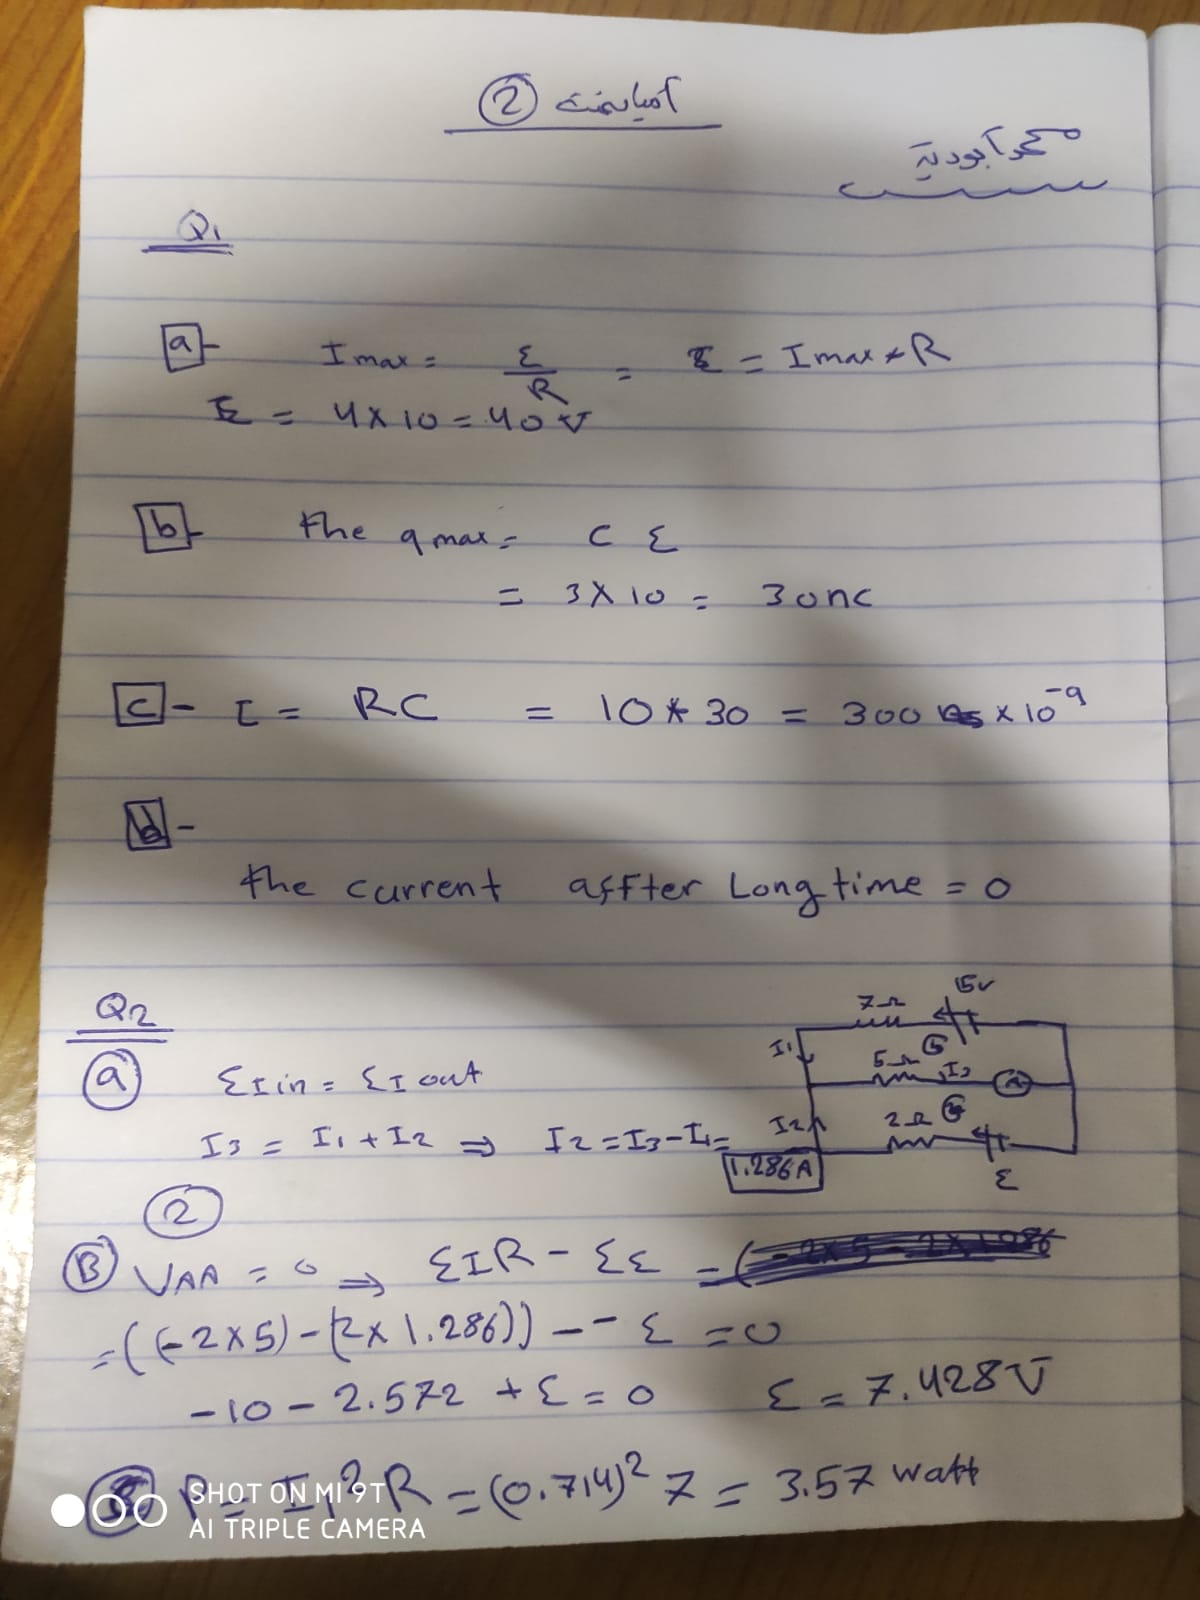 اساينمنت ②
محمد ابودية
Q1
a- I max = ε/R = ε = I max * R
ε = 4 x 10 = 40 V
b- the q max = C ε
= 3 X 10 = 30nc
c- τ = RC = 10 * 30 = 300 x 10^-9
d-
the current affter Long time = 0
Q2
15v
7Ω
I1
5Ω
I3
A
I2
2Ω
ε
a ΣI in = ΣI out
I3 = I1 + I2 ⇒ I2 = I3 - I1 =
1.286A
2
B VAA = 0 ⇒ ΣIR - Σε =
= ((-2x5) - (2x1.286)) - - ε = 0
-10 - 2.572 + ε = 0 ε = 7.428 V
P = I1² R = (0.714)² 7 = 3.57 watt
SHOT ON MI 9T
AI TRIPLE CAMERA